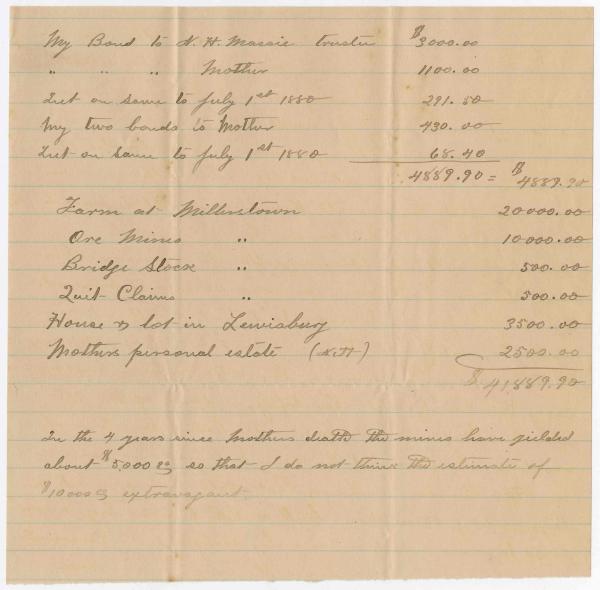 My Bond to N. H. Massie trustee $3000.00
" " " Mother 1100.00
Int on same to July 1st 1880 291.50
My two bonds to Mother 430.00
Int on same to July 1st 1880 68.40
4889.90 = $4889.90
Farm at Millerstown 20000.00
Ore Mines " 10000.00
Bridge Stock " 500.00
Quit Claims " 500.00
House & lot in Lewisburg 3500.00
Mothers personal estate (N.H) 2500.00
$41,889.90
In the 4 years since Mothers death the mines have yielded
about $5,000 00 so that I do not think the estimate of
$10000 extravagant.